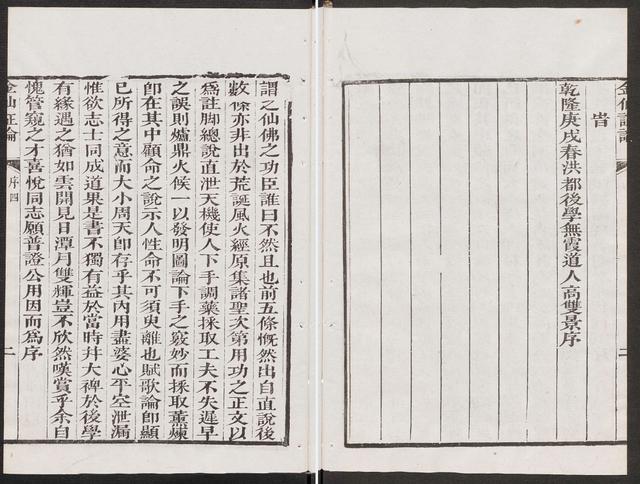 謂之仙佛之功臣誰曰不然且也前五條慨然出自直說後
數條亦非出於荒誕風火經原集諸聖次第用功之正文以
爲註脚總說直泄天機使人下手調藥採取工夫不失遲早
之誤則爐鼎火候一以發明圖論下手之竅妙而採取薰煉
卽在其中顧命之說示人性命不可須臾離也賦歌論卽顯
已所得之意而大小周天卽存乎其內用盡婆心平空泄漏
惟欲志士同成道果是書不獨有益於當時幷大裨於後學
有緣遇之猶如雲開見日潭月雙輝豈不欣然嘆賞乎余自
愧管窺之才喜悅同志願普證公用因而爲序
金仙正論
序四
二
金仙證論
旹
乾隆庚戌春洪都後學無霞道人高雙景序